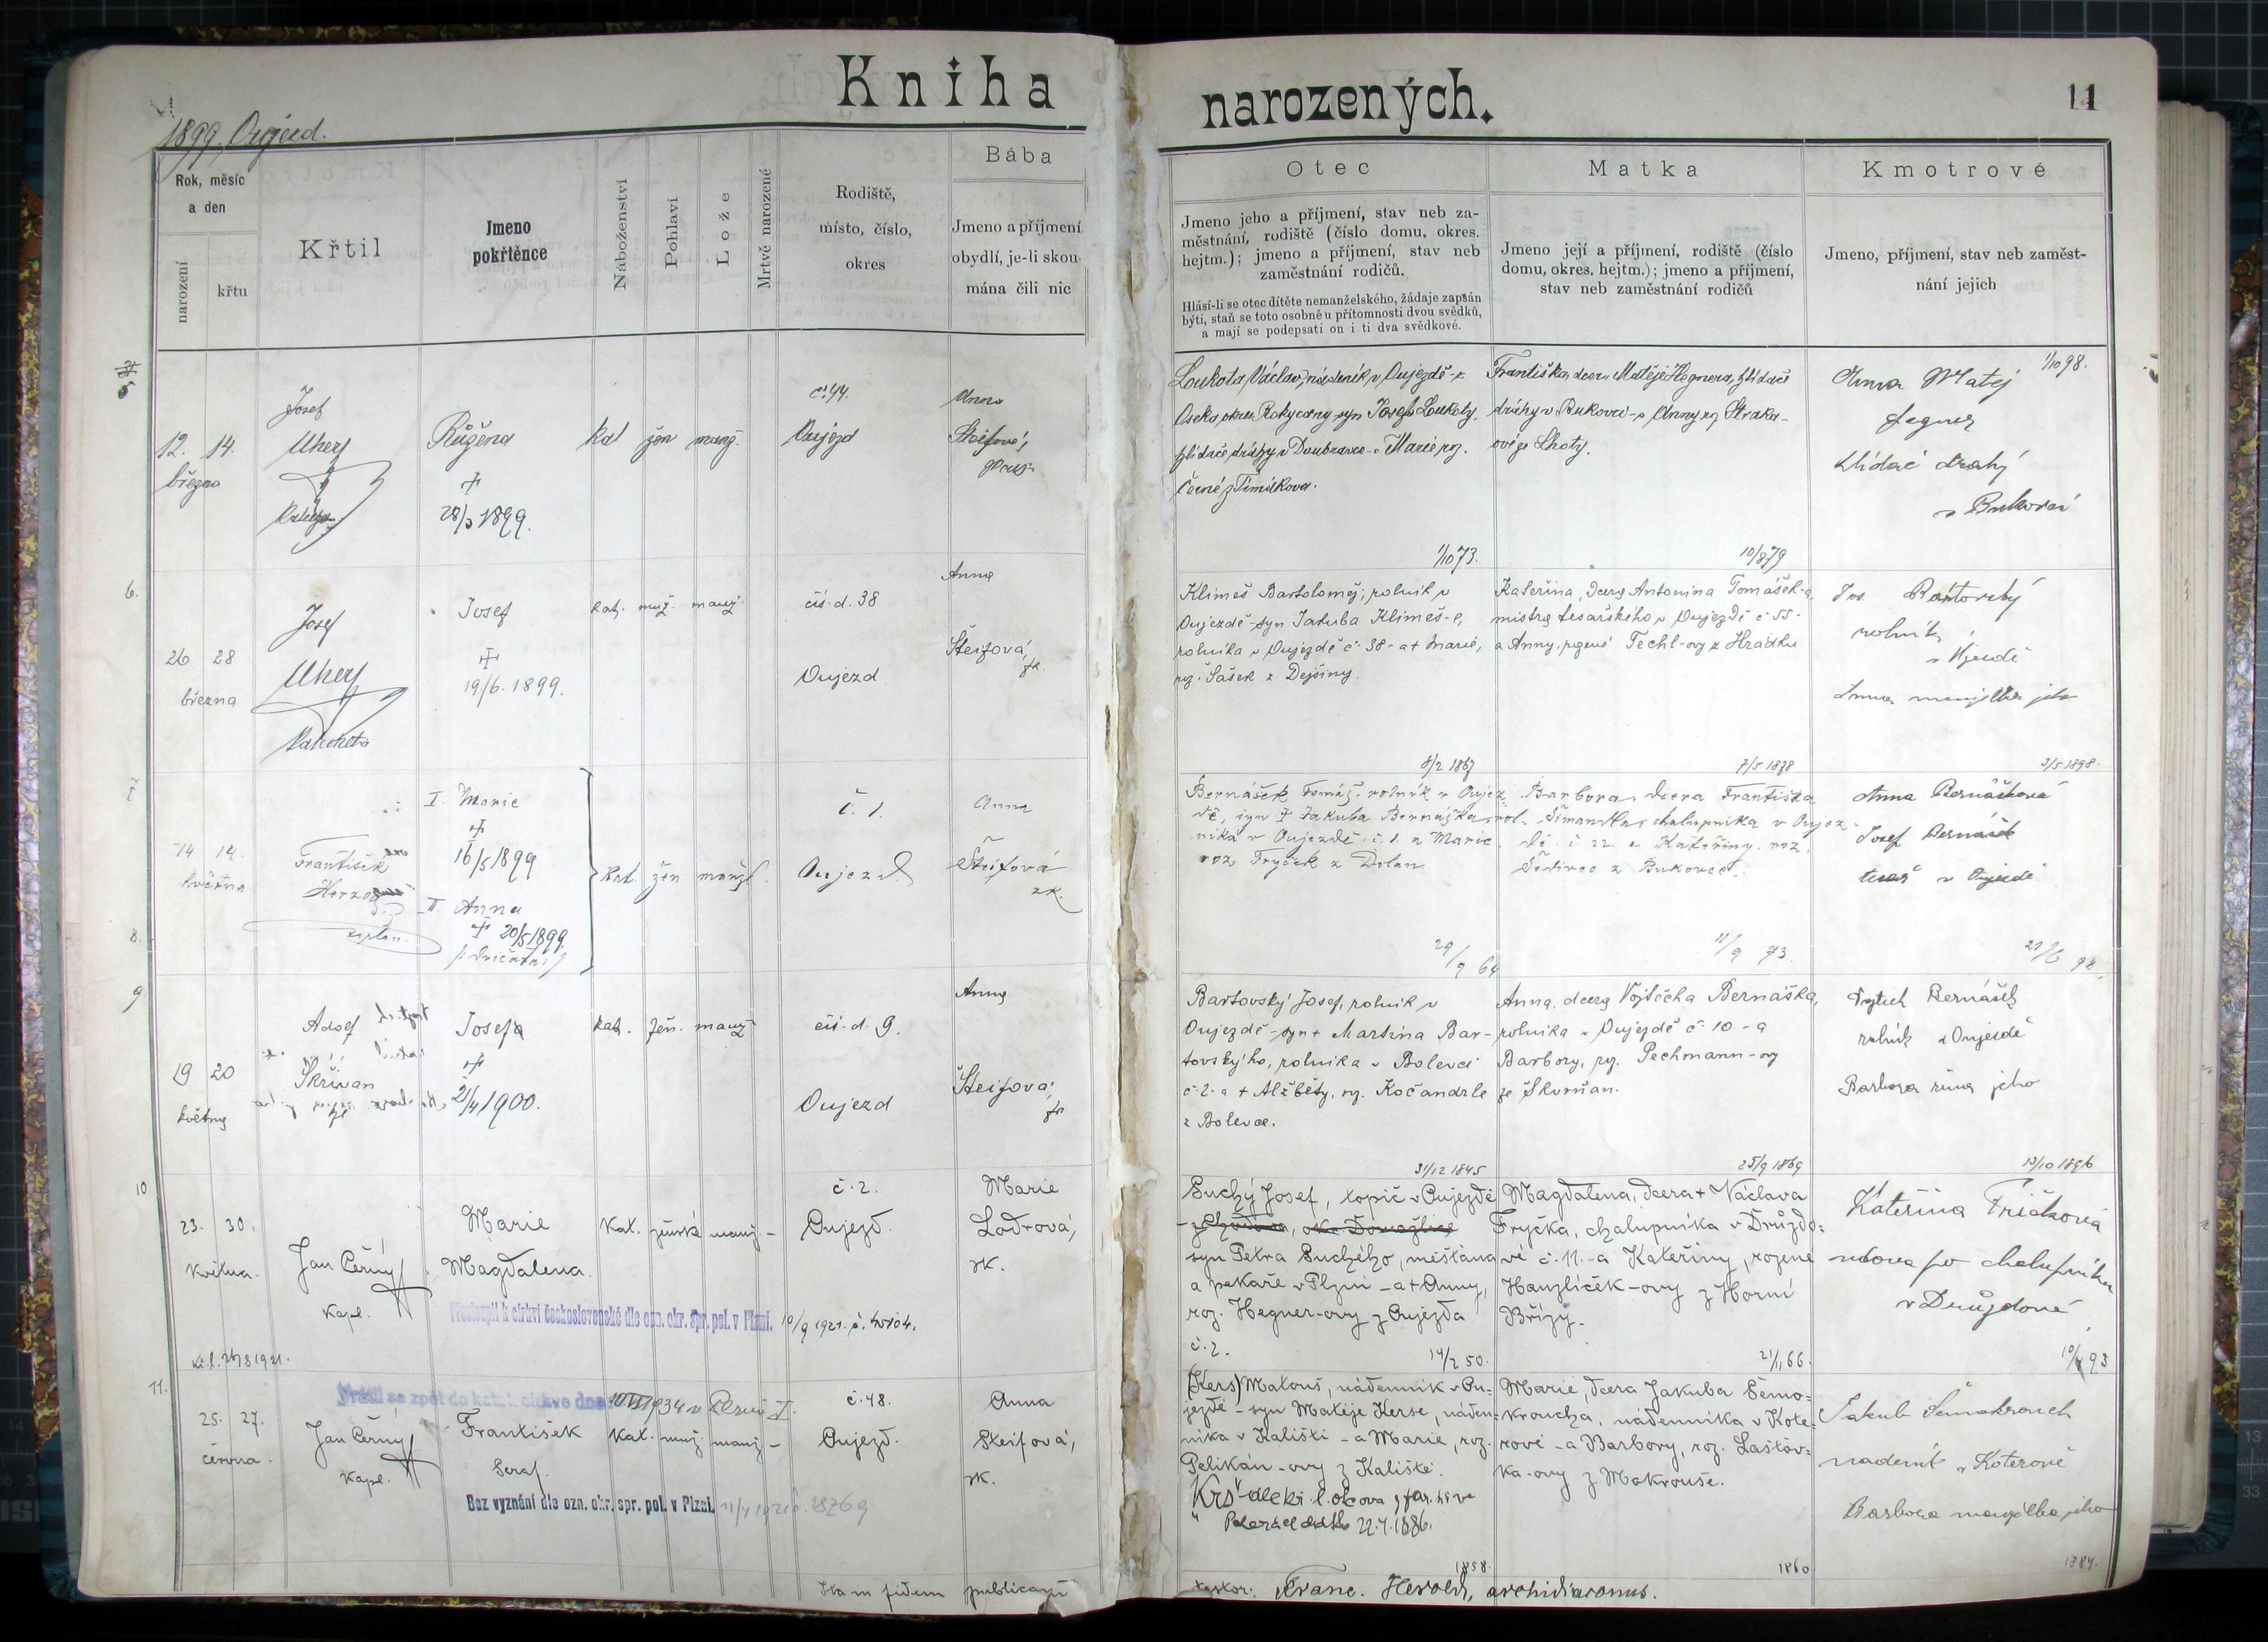 Kniha
narozených.
11
1899. Oujezd.
Rok, měsíc
a den
narození
křtu
Křtil
Jmeno
pokřtěnce
Náboženství
Pohlaví
Lože
Mrtvě narozené
Rodiště,
místo, číslo,
okres
Bába
Jmeno a příjmení
obydlí, je-li skou-
mána čili nic
Otec
Jmeno jeho a příjmení, stav neb za-
městnání, rodiště (číslo domu, okres.
hejtm.); jmeno a příjmení, stav neb
zaměstnání rodičů.
Hlásí-li se otec dítěte nemanželského, žádaje zapsán
býti, staň se toto osobně u přítomnosti dvou svědků,
a mají se podepsati on i ti dva svědkové.
Matka
Jmeno její a příjmení, rodiště (číslo
domu, okres. hejtm.); jmeno a příjmení,
stav neb zaměstnání rodičů
Kmotrové
Jmeno, příjmení, stav neb zaměst-
nání jejich
5
12. 14.
března
Josef
Uherý
Růžena
+
28/3 1899.
Kat žen manž.
č. 44.
Oujezd
Anna
Šteifová,
Loukota Václav, nádeník v Oujezdě - z
Oseka okres Rokycany - syn Josefa Loukoty,
hlídače dráhy v Doubravce - a Marie roz.
Černé z Tímákova.
1/10 73.
Františka, dcera Matěje Hegnera, hlídače
dráhy v Bukovci - a Anny roz. Straka-
ové ze Lhoty.
10/8 79
1/10 98.
Anna Matěj
Hegner
hlídač dráhy
v Bukovci
6.
26 28
března
Josef
Uherý
Katecheta
Josef
+
19./6. 1899.
Kat. muž. manž.
čís. d. 38
Oujezd
Anna
Šteifová,
zk.
Klimeš Bartoloměj, rolník v
Oujezdě - syn Jakuba Klimeš-e,
rolníka v Oujezdě č. 38 - a + Marie,
roz. Šašek z Dejšiny.
8/2 1867
Kateřina, dcera Antonína Tomášek-a,
mistra tesařského v Oujezdě č 55 -
a Anny, rozené Techl-ovy z Hrádku
7/5 1878
Jos. Bartovský
rolník
v Újezdě
Anna manželka jeho
3/5 1898.
8.
14 14.
května
František
Herzog
kaplan.
I. Marie
+
16/5 1899
II. Anna
+ 20/5 1899.
/: dvojčata :/
Kat. žen manžel.
č. 1.
Oujezd
Anna
Šteifová
zk.
Bernášek Tomáš, rolník v Oujez-
dě, syn + Jakuba Bernáška, rol-
níka v Oujezdě č. 1. a Marie
roz. Fryček z Dolan
29/9 64
Barbora, dcera Františka
Šimandla, chalupníka v Oujez-
dě č. 22. a Kateřiny roz.
Šedivec z Bukovce.
11/9 73.
Anna Bernášková
Josef Bernášek
tesař v Oujezdě
21/6 98.
9
19 20
května
Adolf
Skřivan
Josefa
+
2/4 1900.
Kat. žen. manž
čís. d. 9.
Oujezd
Anna
Šteifová,
zk
Bartovský Josef, rolník v
Oujezdě - syn + Martina Bar-
tovského, rolníka v Bolevci
č. 2. a + Alžběty, roz. Kočandrle
z Bolevce.
31/12 1845
Anna, dcera Vojtěcha Bernáška,
rolníka v Oujezdě č. 10 - a
Barbory, roz. Pechmann-ovy
ze Skvrňan.
25/9 1869
Vojtěch Bernášek
rolník v Oujezdě
Barbora žena jeho
13/10 1896
10
23. 30.
května.
Jan Černý
kapl.
Marie
Magdalena.
Kat. ženské manž. -
č. 2.
Oujezd.
Marie
Lodrová,
zk.
Přestoupil k církvi československé dle ozn. okr. spr. pol. v Plzni. 10/9 1921. č. 45104.
Suchý Josef, topič v Oujezdě
syn Petra Suchého, měšťana
a pekaře v Plzni - a + Anny,
roz. Hegner-ovy z Oujezda
č. 2.
14/2 50.
Magdalena, dcera + Václava
Fryčka, chalupníka v Druždo-
vé č. 11. - a Kateřiny, rozené
Hanzlíček-ovy z Horní
Břízy.
21/1 66.
Kateřina Fričková
vdova po chalupníku
v Druzdové
10/4 93
11.
25. 27.
června.
Vrátil se zpět do katol. církve dne 10/VII 1934 v Plzni I.
Jan Černý
kapl.
František
Seraf.
Kat. muž. manž. -
č. 48.
Oujezd.
Anna
Šteifová,
zk.
Bez vyznání dle ozn. okr. spr. pol. v Plzni.
(Kers) Matouš, nádenník v Ou-
jezdě - syn Matěje Kerse, náden-
níka v Kališti - a Marie, roz.
Pelikán-ovy z Kaliště.
Krs dle kř. l. otcova z far. úř. ve
22.7.1886.
1858.
Marie, dcera Jakuba Šemo-
kroucha, nádenníka v Kote-
rově - a Barbory, roz. Laštov-
ka-ovy z Mokrouše.
1860
Jakub Šmakrouch
nádeník v Koterově
Barbora manželka jeho
1884.
Ita in fidem publicam
testor: Franc. Herold, archidiaconus.